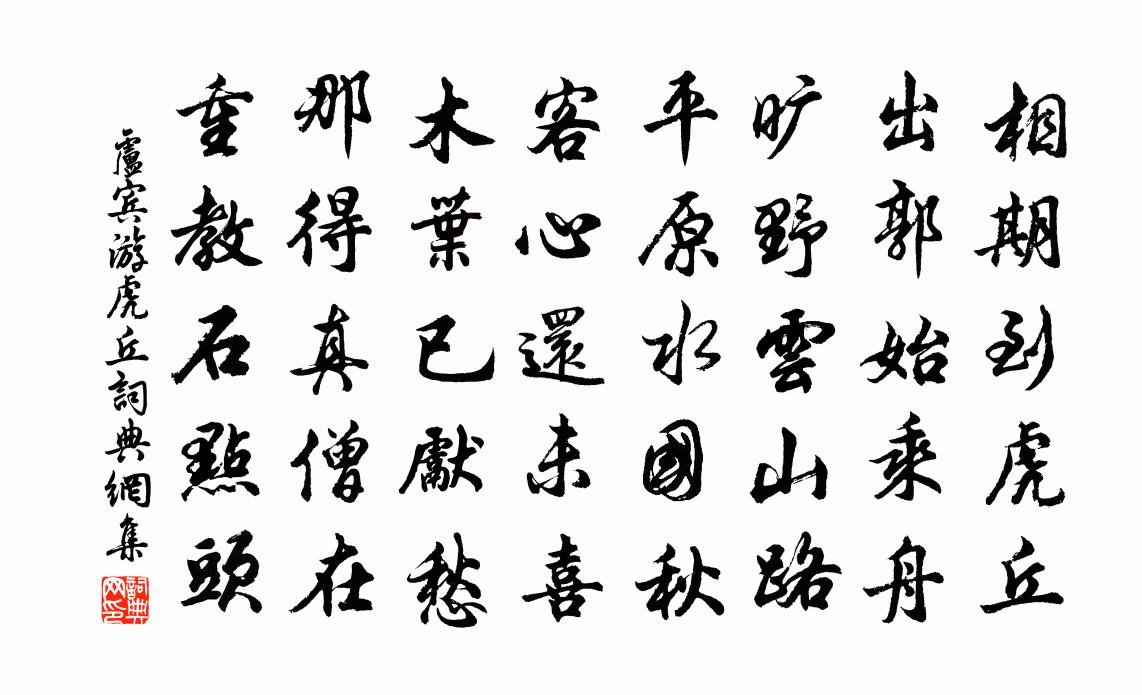 相期到虎丘
出郭始乘舟
旷野雲山路
平原水國秋
客心還未喜
木葉已獻愁
那得真僧在
重教石點頭
盧宾游虎丘詞典網集
詞典网印